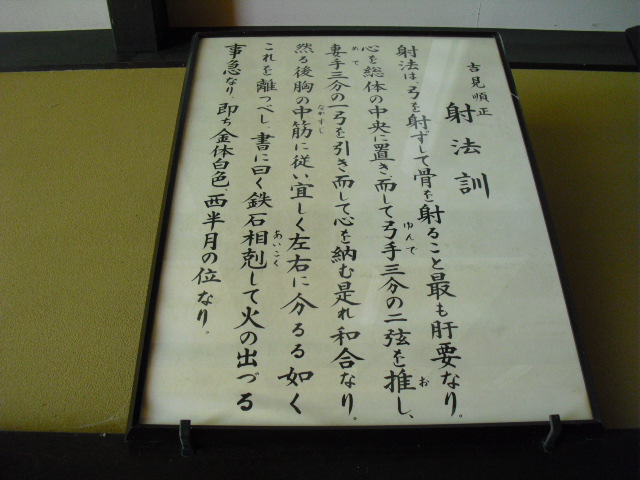 射法訓
吉見順正
射法は、弓を射ずして骨を射ること最も肝要なり。
心を総体の中央に置き而して弓手三分の二弦を推し、
ゆんで
お
妻手三分の一弓を引き而して心を納む是れ和合なり。
めて
然る後胸の中筋に従い宜しく左右に分るる如く
なかすじ
これを離つべし、書に曰く鉄石相剋して火の出づる
あいこく
事急なり、即ち金体白色、西半月の位なり。